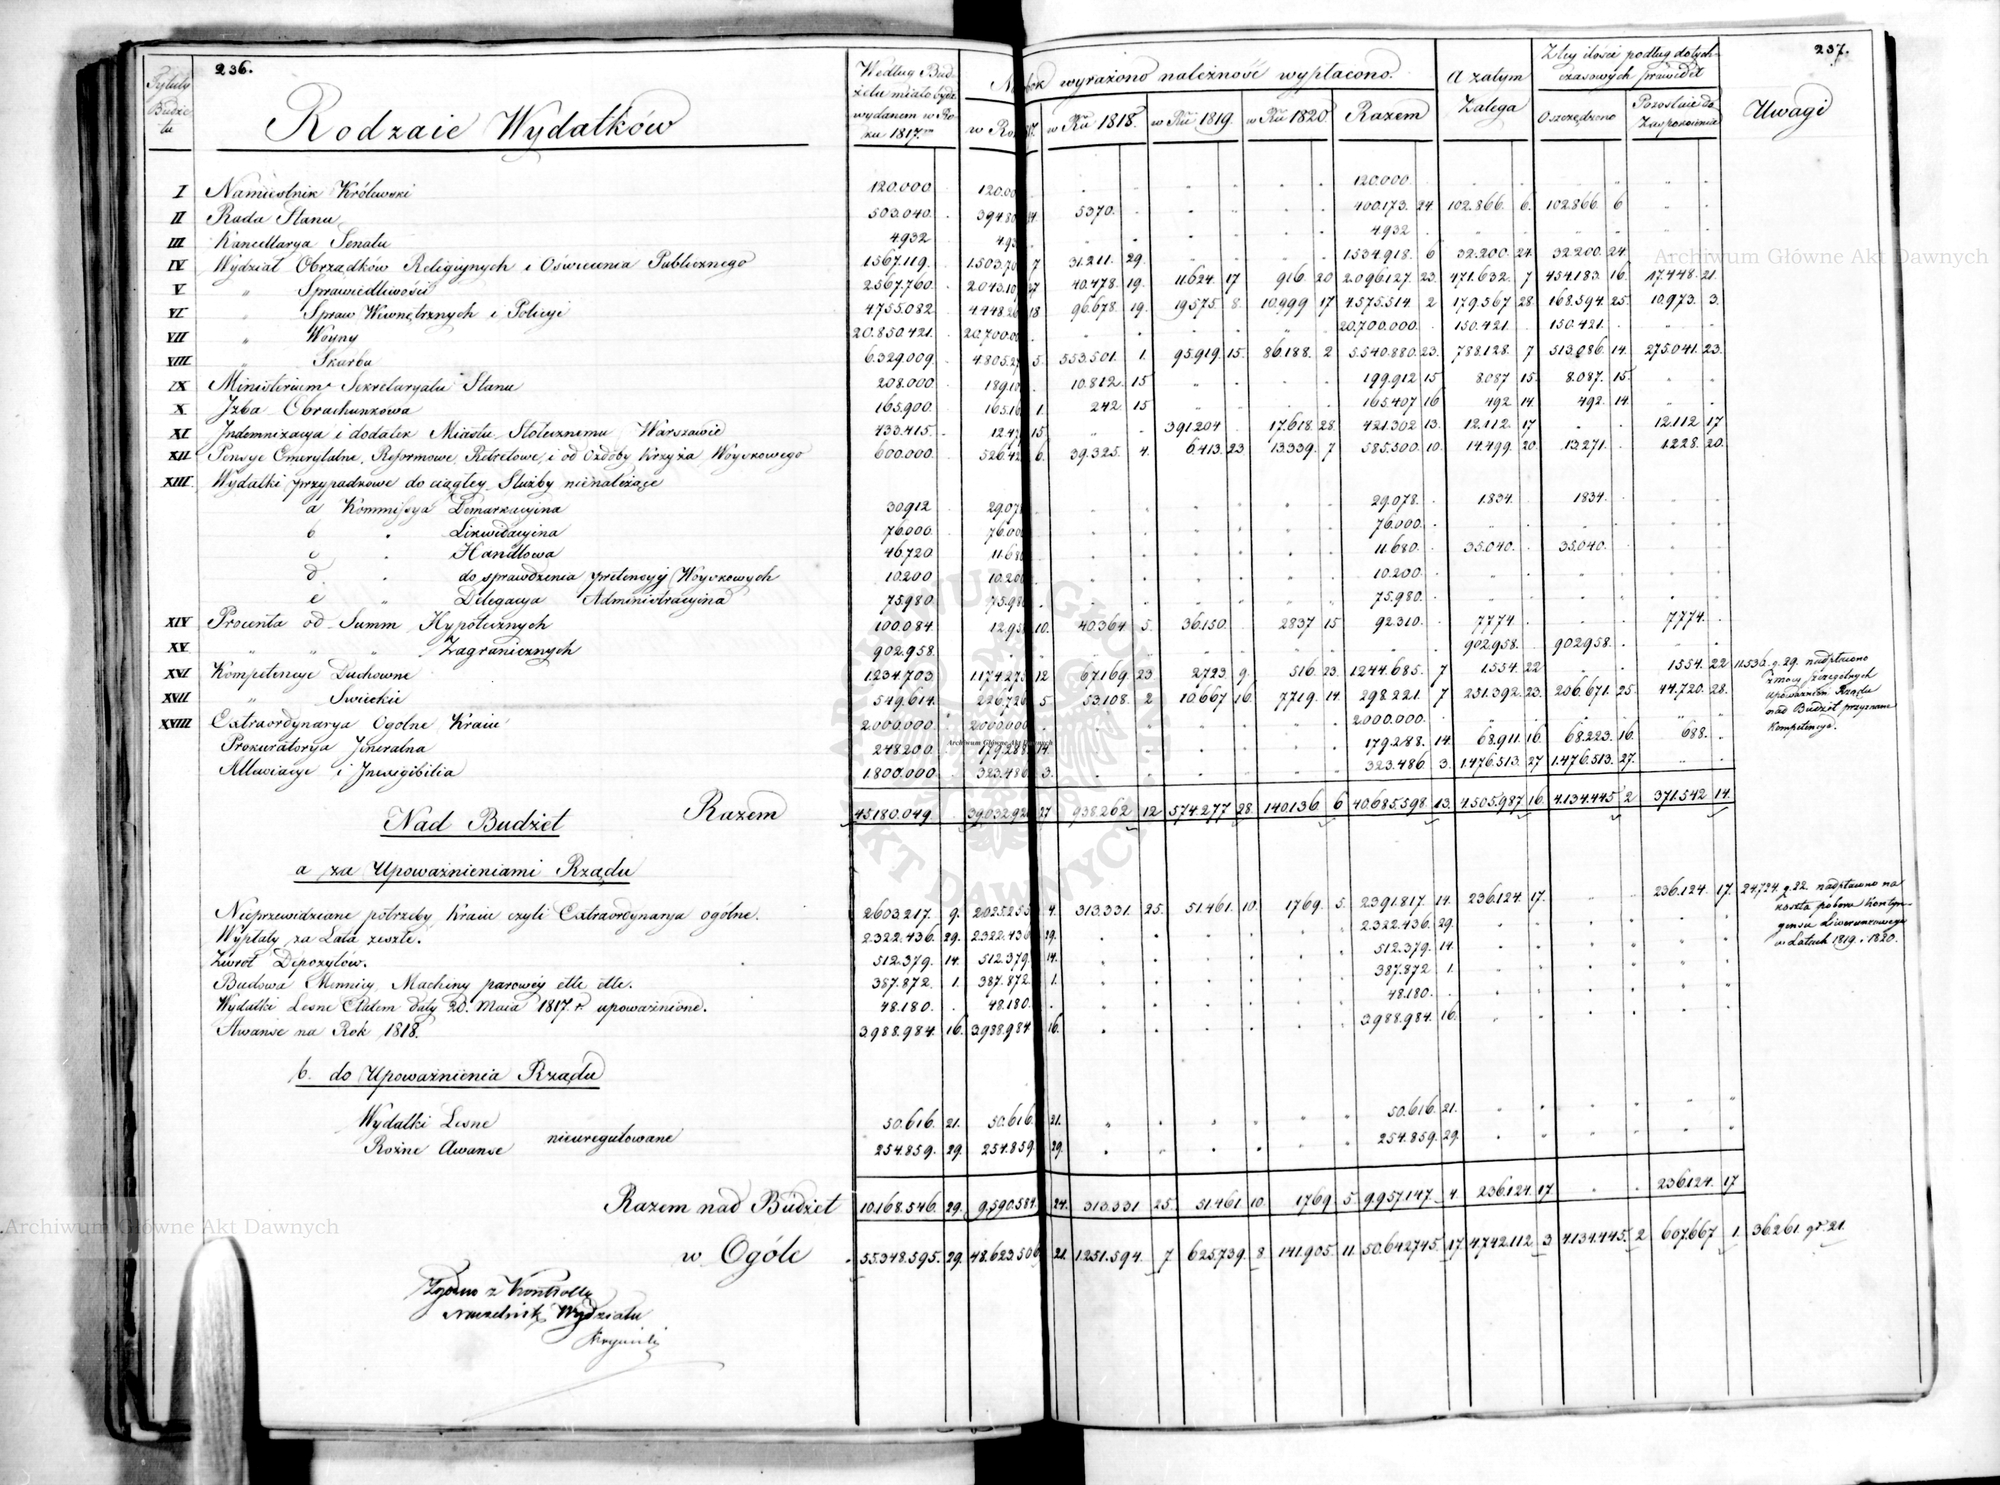 236.
237.
Tytuły Budżetu
Rodzaie Wydatków
Według Budżetu miało bydź wydanem w Roku 1817m
Na wyrażono należność wypłacono.
w Ro 17
w Rū 1818.
w Rū 1819.
w Rū 1820
Razem
a zatym Zalega
Z tey ilości podług dotychczasowych prawideł
Oszczędzono
Pozostaie do Zaspokoienia
Uwagi
I Namiestnik Królewski 120.000. 120.00 120.000.
II Rada Stanu 503.040. 394.80 24. 5370. 400.173. 24 102.866. 6. 102.866. 6
III Kancellarya Senatu 4.932 4.93 4.932
IV Wydział Obrządków Religiynych i Oświecenia Publicznego 1.567.119. 1.503.70 7 31.211. 29. 1.534.918. 6 32.200. 24. 32.200. 24.
V " Sprawiedliwości 2.567.760. 2.043.10 17 40.478. 19. 11.624. 17 916. 20 2.096.127. 23. 471.632. 7 454.183. 16. 17.448. 21.
VI " Spraw Wewnętrznych i Policyi 4.755.082. 4.448.26 18 96.678. 19. 19.575. 8. 10.999 17 4.575.514. 2 179.567 28. 168.594. 25. 10.973. 3.
VII " Woyny 20.850.421. 20.700.00 20.700.000. 150.421. 150.421.
VIII " Skarbu 6.329.009. 4.805.27 5. 553.501. 1. 95.919. 15. 86.188. 2 5.540.880. 23. 788.128. 7 513.086. 14. 275.041. 23.
IX Ministerium Sekretaryatu Stanu 208.000. 189.10 10.812. 15 199.912 15 8.087 15. 8.087. 15.
X Jzba Obrachunkowa 165.900. 165.16 1. 242. 15 165.407 16 492 14. 492. 14
XI Jndemnizacya i dodatek Miastu Stołecznemu Warszawie 433.415. 12.47 15. 391.204 17.618. 28. 421.302 13. 12.112. 17 12.112 17
XII Pensye Emerytalne, Reformowe, Retretowe, i od Ozdoby Krzyża Woyskowego 600.000. 526.42 6. 39.325. 4. 6.413. 23 13.339. 7 585.500. 10. 14.499. 20. 13.271. 1.228. 20.
XIII Wydatki przypadkowe do ciągłey Służby nienależące
a Kommissya Demarkacyina 30.912 29.07 29.078. 1.834. 1834.
b " Likwidacyina 76.000. 76.00 76.000.
c " Handlowa 46.720 11.68 11.680. 35.040. 35.040.
d " do sprawdzenia pretensyj Woyskowych 10.200 10.200 10.200.
e " Delegacya Administracyina 75.980 75.98 75.980.
XIV Procenta od Summ Hypotecznych 100.084. 12.95 10. 40.364 5. 36.150. 2837 15 92.310. 7774. 7.774.
XV " " " Zagranicznych 902.958. 902.958. 902.958.
XVI Kompetencye Duchowne 1.234.703 1.174.275 12 67.169. 23 2.723. 9. 516. 23. 1.244.685. 7 1.554. 22 1.554. 22
XVII " Swieckie 549.614. 226.726 5 53.108. 2 10.667 16. 7.719. 14. 298.221. 7 251.392. 23. 206.671. 25. 44.720. 28.
11.536. g. 29. nadpłacono z mocy szczególnych upoważnień Rządu nad Budżet przyznane Kompetencye.
XVIII Extraordynarya Ogolne Kraiu 2.000.000. 2.000.000. 2.000.000.
Prokuratorya Jeneralna 248.200. 179.288. 14. 179.288. 14. 68.911. 16. 68.223. 16. 688.
Alluviacye i Jnexigibilia 1.800.000. 323.486 3. 323.486 3. 1.476.513. 27 1.476.513. 27.
Razem 45.180.049. 39.032.92 27 938.262 12 574.277 28. 140.136 6 40.685.598. 13. 4.505.987 16. 4.134.445. 2 371.542. 14.
Nad Budżet
a za Upoważnieniami Rządu
Nieprzewidziane potrzeby Kraiu czyli Extraordynarya ogólne. 2.603.217. 9. 2.025.255 4. 313.331. 25. 51.461. 10. 1.769. 5. 2.391.817. 14. 236.124. 17. 236.124. 17.
24,724. g. 22. nadpłacono na koszta poboru Kontyngensu Liwerunkowego w Latach 1819. i 1820.
Wypłaty za Lata zeszłe. 2.322.436. 29. 2.322.436 29. 2.322.436. 29.
Zwrot Depozytów. 512.379. 14. 512.379. 14. 512.379. 14.
Budowa Mennicy, Machiny parowey etc. etc. 387.872. 1. 387.872. 1. 387.872 1.
Wydatki Lesne Etatem daty 20. Maia 1817. r. upoważnione. 48.180. 48.180. 48.180.
Awanse na Rok 1818. 3.988.984. 16. 3.988.984 16. 3.988.984. 16.
b. do Upoważnienia Rządu
Wydatki Lesne 50.616. 21. 50.616. 21. 50.616. 21.
nieuregulowane
Rożne Awanse 254.859. 29. 254.859. 29. 254.859. 29.
Razem nad Budżet 10.168.546. 29. 9.590.584. 24. 313.331 25. 51.461 10. 1769. 5. 9.957.147. 4. 236.124. 17. 236.124. 17
w Ogóle 55.348.595. 29. 48.623.506 21. 1.251.594. 7 625.739. 8. 141.905. 11. 50.642.745. 17 4.742.112. 3 4.134.445. 2 607.667 1. 36.261. gr. 21.
Zgodno z Kontrollą
Naczelnik Wydziału
Archiwum Główne Akt Dawnych
Archiwum Główne Akt Dawnych
Archiwum Główne Akt Dawnych
ARCHIWUM GŁÓWNE AKT DAWNYCH